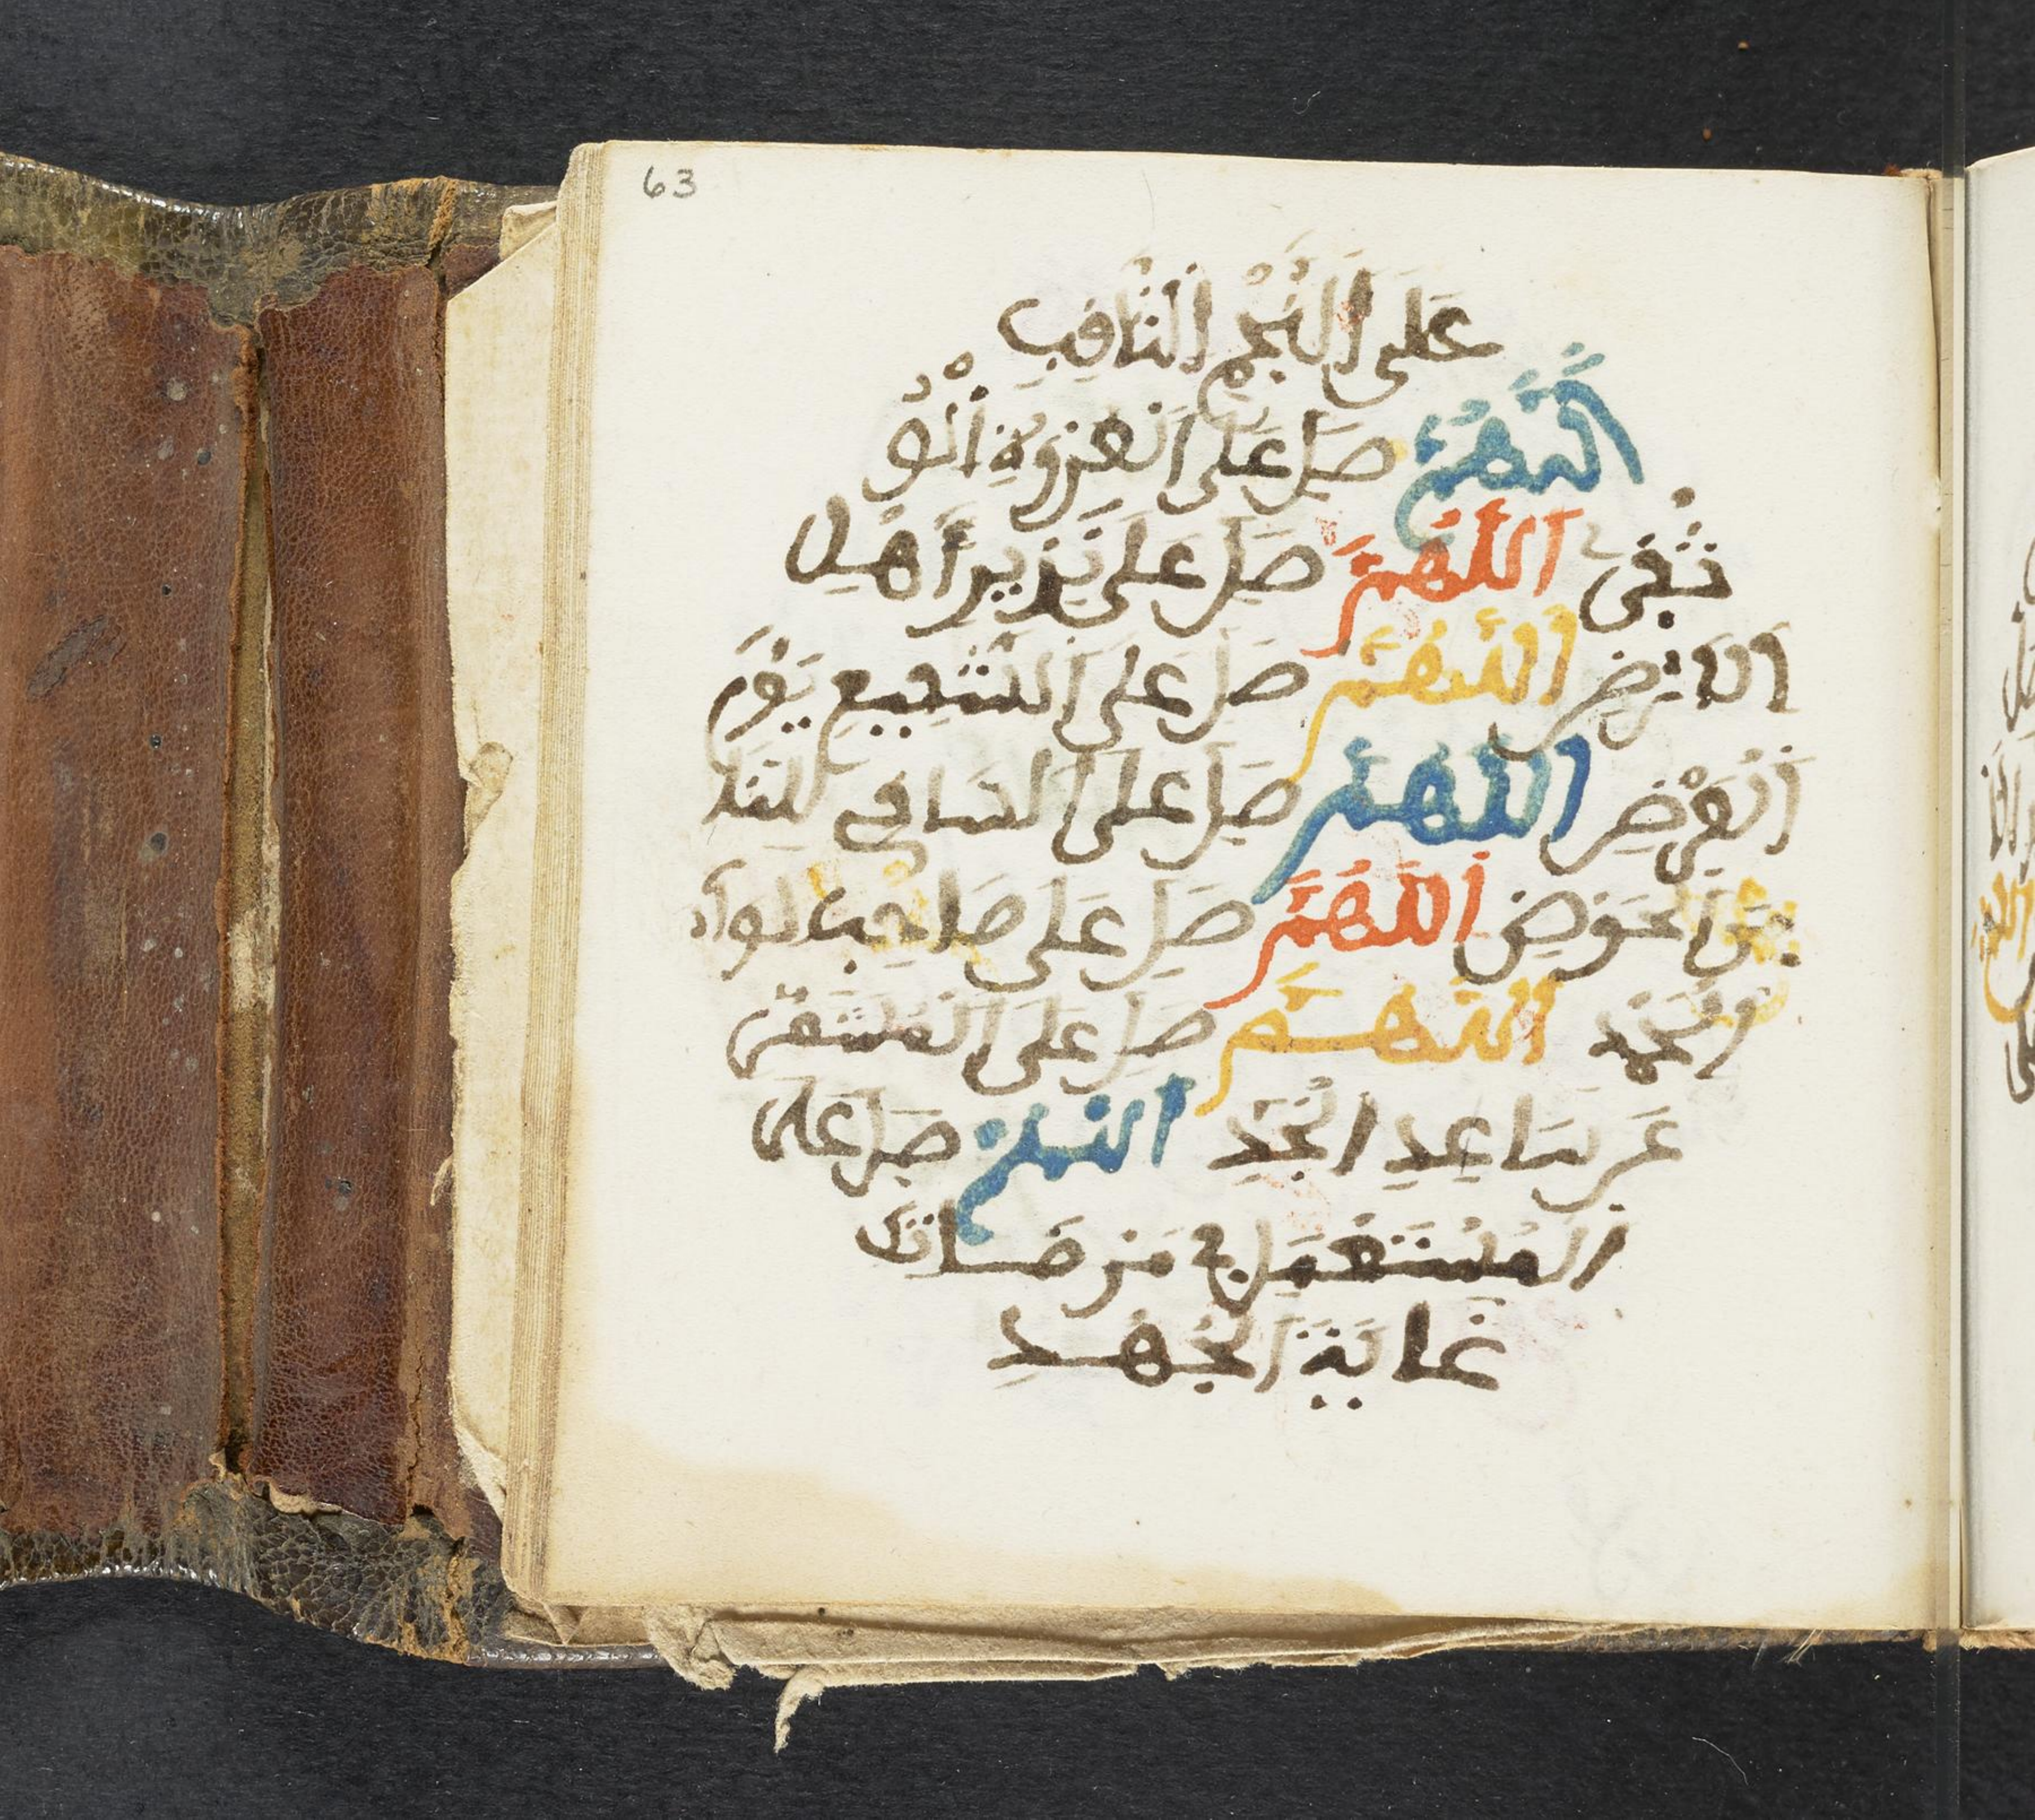 63
عَلَى النَّجْمِ الثَّاقِبِ
اللَّهُمَّ صَلِّ عَلَى الْعُرْوَةِ الْوُ
ثْقَى اللَّهُمَّ صَلِّ عَلَى نَذِيرِ أَهْلِ
الْأَرْضِ اللَّهُمَّ صَلِّ عَلَى الشَّفِيعِ يَوْمَ
الْعَرْضِ اللَّهُمَّ صَلِّ عَلَى السَّاقِي لِلنَّا
سِ مِنَ الْحَوْضِ اللَّهُمَّ صَلِّ عَلَى صَاحِبِ لِوَاءِ
الْحَمْدِ اللَّهُمَّ صَلِّ عَلَى الْمُشَمِّرِ
عَنْ سَاعِدِ الْجِدِّ اللَّهُمَّ صَلِّ عَلَى
الْمُسْتَعْمِلِ فِي مَرْضَاتِكَ
غَايَةَ الْجُهْدِ